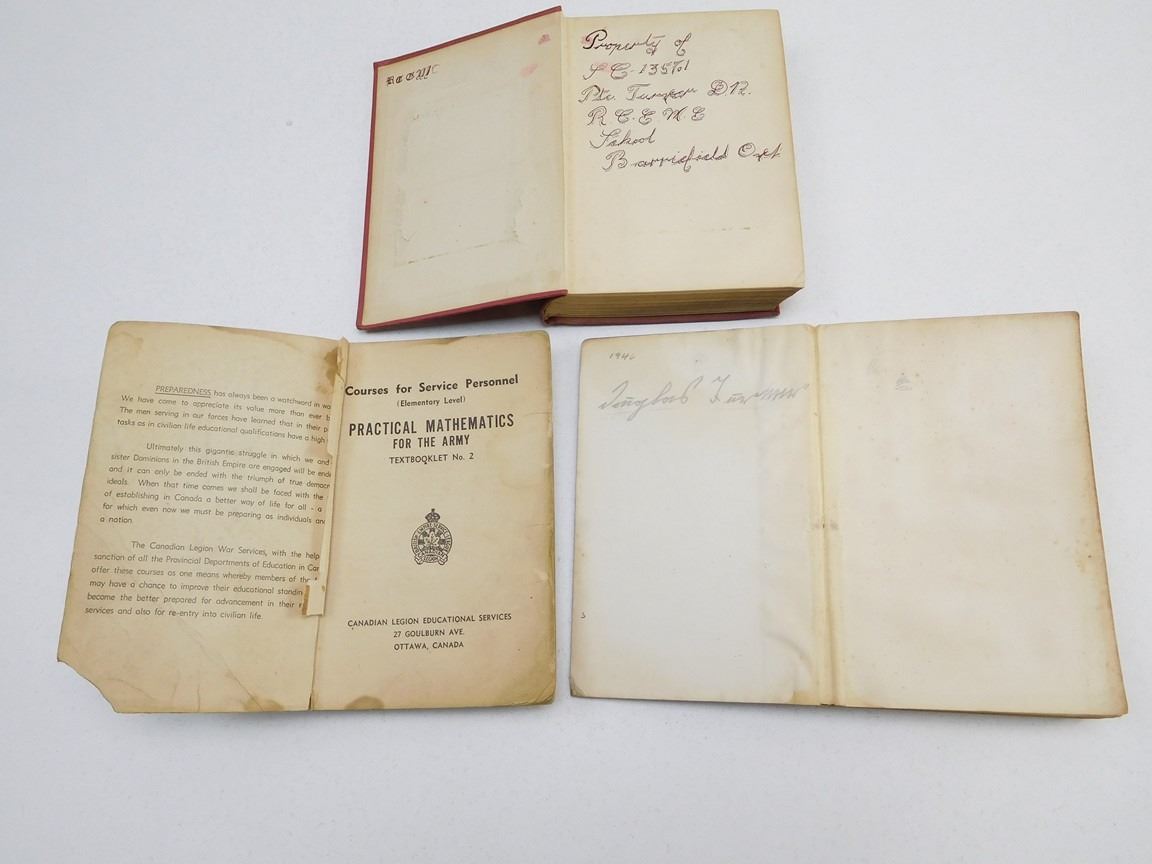 Property of
Pte. Turner D.R.
R C. E. M. E
School
Barriefield Ont
PREPAREDNESS has always been a watchword in
We have come to appreciate its value more than ever
The men serving in our forces have learned that in their
tasks as in civilian life educational qualifications have a high
Ultimately this gigantic struggle in which we and
sister Dominions in the British Empire are engaged will be
and it can only be ended with the triumph of true
ideals. When that time comes we shall be faced with the
of establishing in Canada a better way of life for all - a
for which even now we must be preparing as individuals and
a nation.
The Canadian Legion War Services, with the help
sanction of all the Provincial Departments of Education in
offer these courses as one means whereby members of the
may have a chance to improve their educational
become the better prepared for advancement in their
services and also for re-entry into civilian life.
Courses for Service Personnel
(Elementary Level)
PRACTICAL MATHEMATICS
FOR THE ARMY
TEXTBOOKLET No. 2
CANADIAN LEGION EDUCATIONAL SERVICES
27 GOULBURN AVE.
OTTAWA, CANADA
1946
Douglas Turner